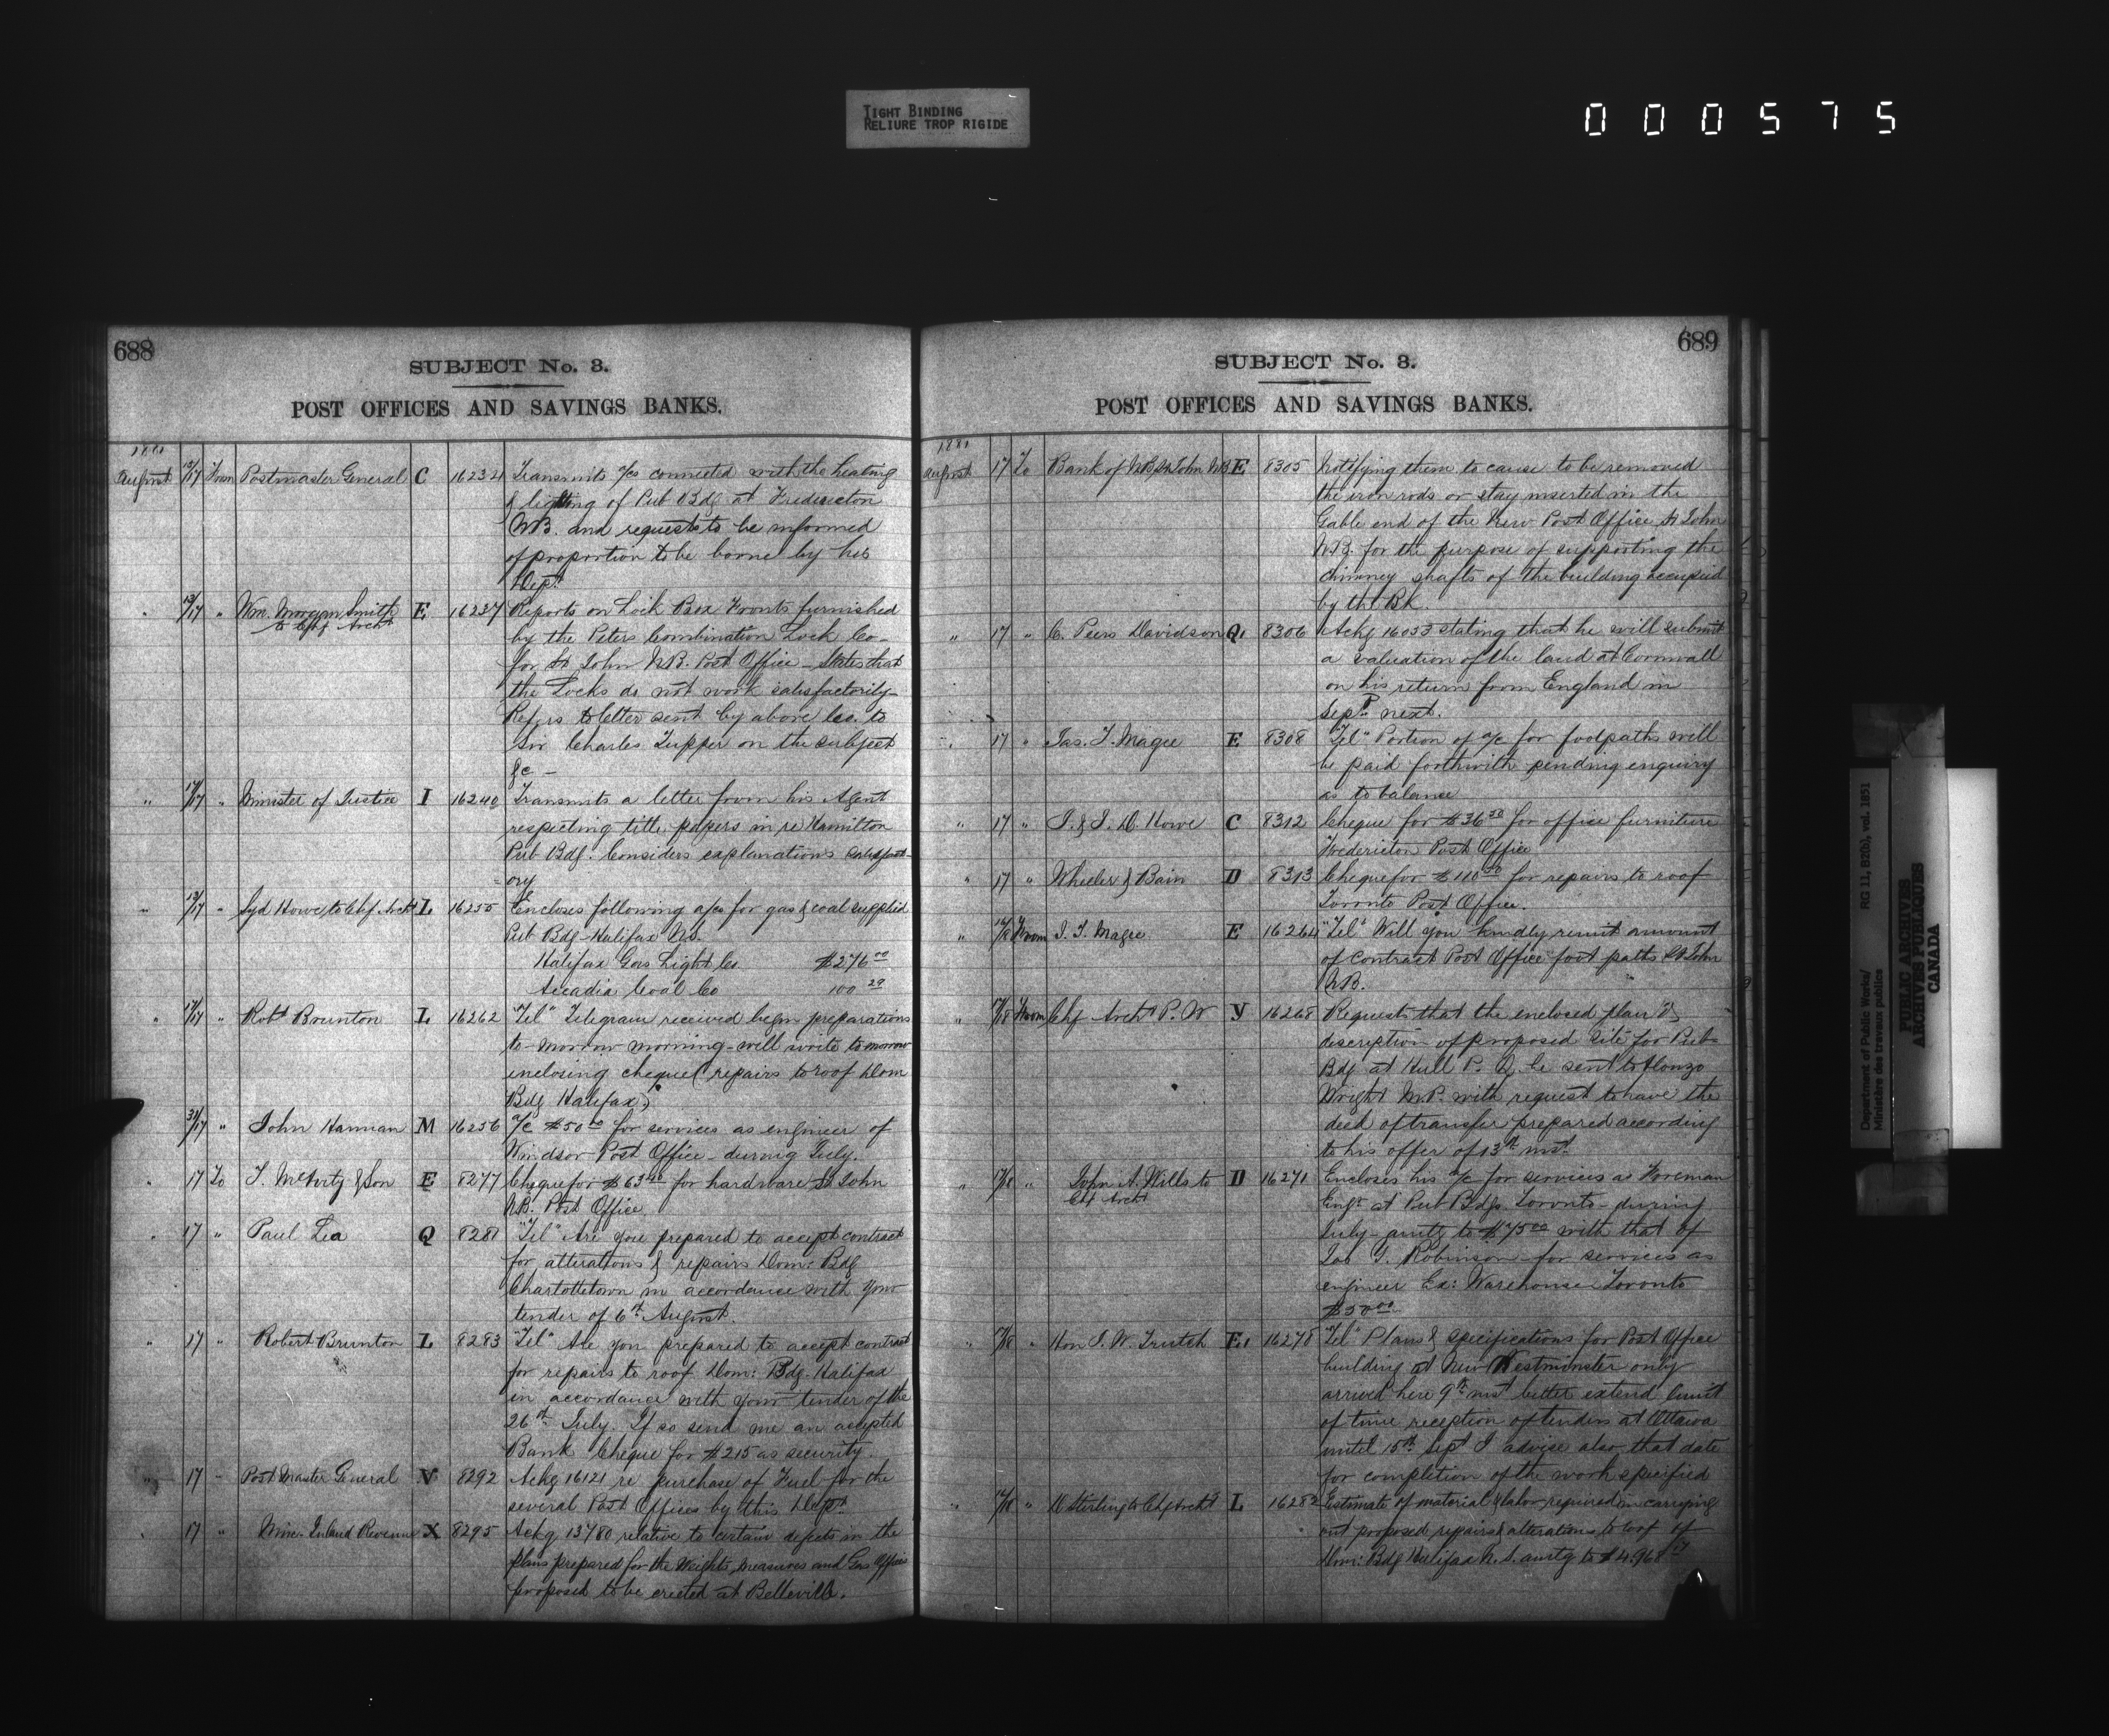 TIGHT BINDING
RELIURE TROP RIGIDE
000575
688
SUBJECT No. 3.
POST OFFICES AND SAVINGS BANKS.
1881
August 13/17 From Postmaster General C 16234 Transmits a/cs connected with the heating
& lighting of Pub Bdg at Fredericton
N.B. and requests to be informed
of proportion to be borne by his
Dept.
" 13/17 " Wm. Morgan Smith E 16237 Reports on Lock Box Fronts furnished
to Chf Archt
by the Peters Combination Lock Co-
for St John N.B. Post Office - States that
the Locks do not work satisfactorily
Refers to letter sent by above Co. to
Sir Charles Tupper on the subject
&c -
" 17/17 " Minister of Justice I 16240 Transmits a letter from his Agent
respecting title papers in re Hamilton
Pub Bdg. Considers explanations satisfact-
-ory
" 13/17 " Syd Howe to Chf Archt L 16255 Encloses following a/cs for gas & coal supplied
Pub Bdg - Halifax N.S.
Halifax Gas Light Co $276.00
Accadia Coal Co 100.29
" 17/17 " Robt Brunton L 16262 "Tel" Telegram received begin preparations
to-morrow morning - will write tomorrow
inclosing cheque (repairs to roof Dom
Bdg Halifax)
31/17 " John Hannan M 16256 a/c $50.00 for services as engineer of
Windsor Post Office - during July.
" 17 To T. McAvity & Son E 8277 Cheque for $63.40 for hardware St John
N.B. Post Office
" 17 " Paul Lea Q 8281 "Tel" Are you prepared to accept contract
for alterations & repairs Dom: Bdg
Charlottetown in accordance with your
tender of 6th August.
" 17 " Robert Brunton L 8283 "Tel" Are you prepared to accept contract
Brunton
for repairs to roof Dom: Bdg. Halifax
in accordance with your tender of the
26th July. If so send me an accepted
Bank Cheque for $215 as security.
" 17 - Post Master General V 8292 Ackg 16121 re purchase of Fuel for the
several Post Offices by this Dept.
" 17 " Min. Inland Revenue X 8295 Ackg 13780 relative to certain defects in the
plans prepared for the Weights, measures and Gas Offices
proposed to be erected at Belleville.
689
SUBJECT No. 3.
POST OFFICES AND SAVINGS BANKS.
1881
August 17 To Bank of N.B. St John NB E 8305 Notifying them to cause to be removed
the iron rods or stay inserted in the
Gable end of the New Post Office St John
N.B. for the purpose of supporting the
chimney shafts of the building occupied
by the Bk.
" 17 " C. Peers Davidson Q. 8306 Ackg 16033 stating that he will submit
a valuation of the land at Cornwall
on his return from England in
Sept next.
" 17 " Jas. T. Magee E 8308 "Tel" Portion of a/c for footpaths will
be paid forthwith pending enquiry
as to balance
" 17 " J. & J. D. Howe C 8312 Cheque for $36.50 for office furniture
Fredericton Post Office
" 17 " Wheeler & Bain D 8313 Cheque for $110.00 for repairs to roof
Toronto Post Office.
" From J. T. Magee E 16264 "Tel" Will you kindly remit amount
of Contract Post Office foot paths St John
N.B.
" 17/18 From Chf Archt P. W Y 16268 Requests that the enclosed plan &
description of proposed site for Pub-
Bdg at Hull P. Q. be sent to Alonzo
Wright M.P. with request to have the
deed of transfer prepared according
to his offer of 13th inst.
" 17/18 " John A. Wills to D 16271 Encloses his a/c for services as Foreman
Chf Archt
Engr at Pub Bdgs. Toronto - during
July - amtg to $75.00 with that of
Jas G. Robinson - for services as
engineer Ex: Warehouse Toronto
$50.00
" 17/18 " Hon J. W. Trutch E. 16278 "Tel" Plans & specifications for Post Office
building at New Westminster only
arrived here 9th inst better extend limit
of time reception of tenders at Ottawa
until 15th Sept I advise also that date
for completion of the work specified
" " D Stirling to Chf Archt L 16282 Estimate of material & labor required in carrying
out proposed repairs & alterations to roof of
Dom: Bdg Halifax N.S. amtg to $4.968.17
Department of Public Works/ RG 11, B2(b), vol. 1851
Ministère des travaux publics
PUBLIC ARCHIVES
ARCHIVES PUBLIQUES
CANADA